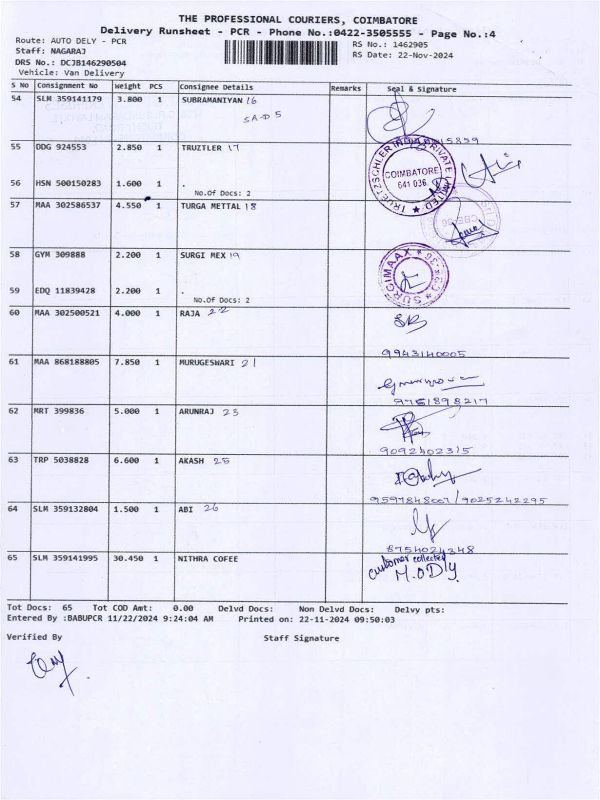 THE PROFESSIONAL COURIERS, COIMBATORE
Delivery Runsheet - PCR - Phone No.:0422-3505555 - Page No.:4
Route: AUTO DELY - PCR
RS No.: 1462905
Staff: NAGARAJ
RS Date: 22-Nov-2024
DRS No.: DCJB146290504
Vehicle: Van Delivery
S No Consignment No Weight PCS Consignee Details Remarks Seal & Signature
54 SLM 359141179 3.800 1 SUBRAMANIYAN 16
55 DDG 924553 2.850 1 TRUZTLER 17
TRUETZSCHLER INDIA PRIVATE LIMITED
COIMBATORE
641 036
56 HSN 500150283 1.600 1 .
No.Of Docs: 2
57 MAA 302586537 4.550 1 TURGA METTAL 18
58 GYM 309888 2.200 1 SURGI MEX 19
SURGIMAAX
59 EDQ 11839428 2.200 1 .
No.Of Docs: 2
60 MAA 302500521 4.000 1 RAJA 22
9943140005
61 MAA 868188805 7.850 1 MURUGESWARI 21
9751898217
62 MRT 399836 5.000 1 ARUNRAJ 23
9092402315
63 TRP 5038828 6.600 1 AKASH 25
9597848007/9025242295
64 SLM 359132804 1.500 1 ABI 26
8754024348
65 SLM 359141995 30.450 1 NITHRA COFEE
customer collected
Tot Docs: 65 Tot COD Amt: 0.00 Delvd Docs: Non Delvd Docs: Delvy pts:
Entered By :BABUPCR 11/22/2024 9:24:04 AM Printed on: 22-11-2024 09:50:03
Verified By Staff Signature